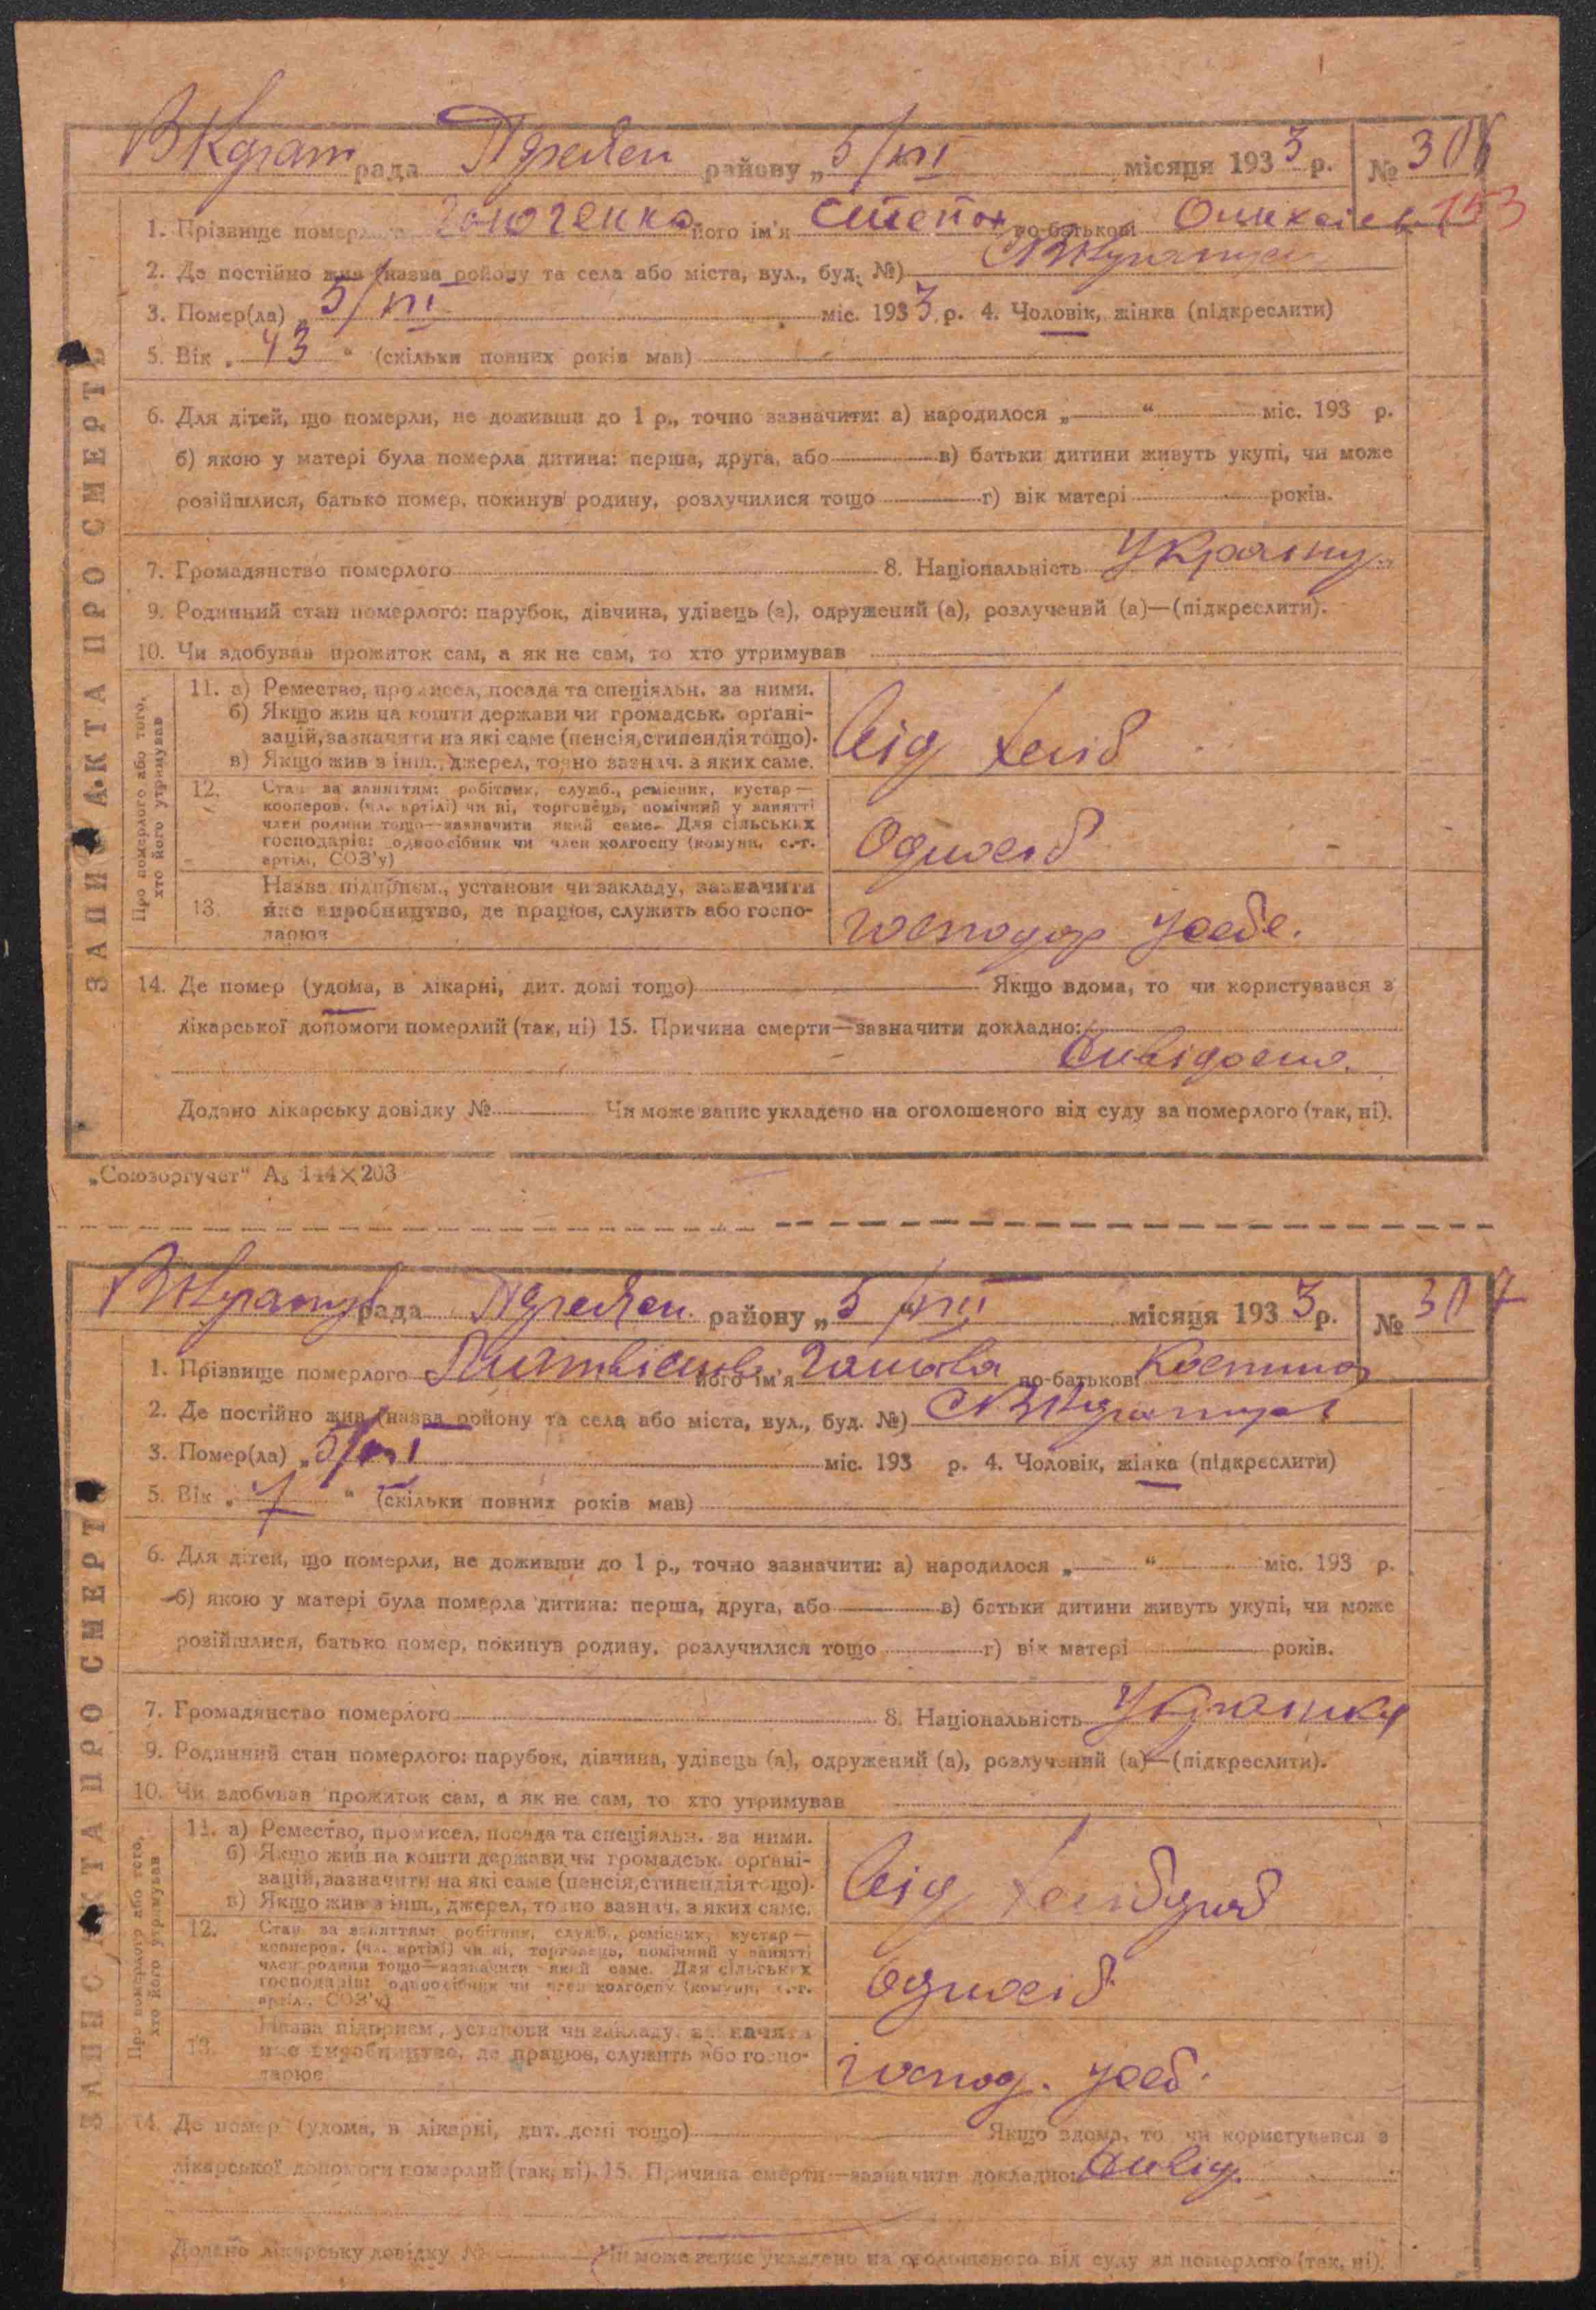 рада району „5/VI місяця 1933 р. № 306
153
1. Прізвище померлого його ім'я Степан по-батькові
2. Де постійно жив (назва району та села або міста, вул., буд. №)
3. Помер(ла) „5/VI міс. 1933 р. 4. Чоловік, жінка (підкреслити)
5. Вік „43“ (скільки повних років мав)
6. Для дітей, що померли, не доживши до 1 р., точно зазначити: а) народилося „ “ міс. 193 р.
б) якою у матері була померла дитина: перша, друга, або в) батьки дитини живуть укупі, чи може
розійшлися, батько помер, покинув родину, розлучилися тощо г) вік матері років.
7. Громадянство померлого 8. Національність
9. Родинний стан померлого: парубок, дівчина, удівець (а), одружений (а), розлучений (а)—(підкреслити).
10. Чи здобував прожиток сам, а як не сам, то хто утримував
Про померлого або того, хто його утримував
11. а) Ремество, промисел, посада та спеціяльн. за ними.
б) Якщо жив на кошти держави чи громадськ. органі-
зацій, зазначити на які саме (пенсія, стипендія тощо).
в) Якщо жив з інш., джерел, точно зазнач. з яких саме.
від хліб
12. Стан за заняттям: робітник, служб., ремісник, кустар—
кооперов. (чл. артілі) чи ні, торговець, помічний у занятті
член родини тощо—зазначити який саме. Для сільських
господарів: одноосібник чи член колгоспу (комуни, с.-г.
артілі, СОЗ'у)
Одноосіб
13. Назва підприєм., установи чи закладу, зазначити
яке виробництво, де працює, служить або госпо-
дарює
господар у себе.
14. Де помер (удома, в лікарні, дит. домі тощо) Якщо вдома, то чи користувався з
лікарської допомоги померлий (так, ні) 15. Причина смерти—зазначити докладно:
Додано лікарську довідку № Чи може запис укладено на оголошеного від суду за померлого (так, ні).
ЗАПИС АКТА ПРО СМЕРТЬ
„Союзоргучет“ А₅ 144×203
рада району „5/VI місяця 1933 р. № 307
1. Прізвище померлого його ім'я по-батькові
2. Де постійно жив (назва району та села або міста, вул., буд. №)
3. Помер(ла) „5/VI міс. 193 р. 4. Чоловік, жінка (підкреслити)
5. Вік „7“ (скільки повних років мав)
6. Для дітей, що померли, не доживши до 1 р., точно зазначити: а) народилося „ “ міс. 193 р.
б) якою у матері була померла дитина: перша, друга, або в) батьки дитини живуть укупі, чи може
розійшлися, батько помер, покинув родину, розлучилися тощо г) вік матері років.
7. Громадянство померлого 8. Національність Українка
9. Родинний стан померлого: парубок, дівчина, удівець (а), одружений (а), розлучений (а)—(підкреслити).
10. Чи здобував прожиток сам, а як не сам, то хто утримував
Про померлого або того, хто його утримував
11. а) Ремество, промисел, посада та спеціяльн. за ними.
б) Якщо жив на кошти держави чи громадськ. органі-
зацій, зазначити на які саме (пенсія, стипендія тощо).
в) Якщо жив з інш., джерел, точно зазнач. з яких саме.
від
12. Стан за заняттям: робітник, служб., ремісник, кустар—
кооперов. (чл. артілі) чи ні, торговець, помічний у занятті
член родини тощо—зазначити який саме. Для сільських
господарів: одноосібник чи член колгоспу (комуни, с.-г.
артілі, СОЗ'у)
Одноосіб
13. Назва підприєм., установи чи закладу, зазначити
яке виробництво, де працює, служить або госпо-
дарює
господ. у себ.
14. Де помер (удома, в лікарні, дит. домі тощо) Якщо вдома, то чи користувався з
лікарської допомоги померлий (так, ні) 15. Причина смерти—зазначити докладно:
Додано лікарську довідку № Чи може запис укладено на оголошеного від суду за померлого (так, ні).
ЗАПИС АКТА ПРО СМЕРТЬ